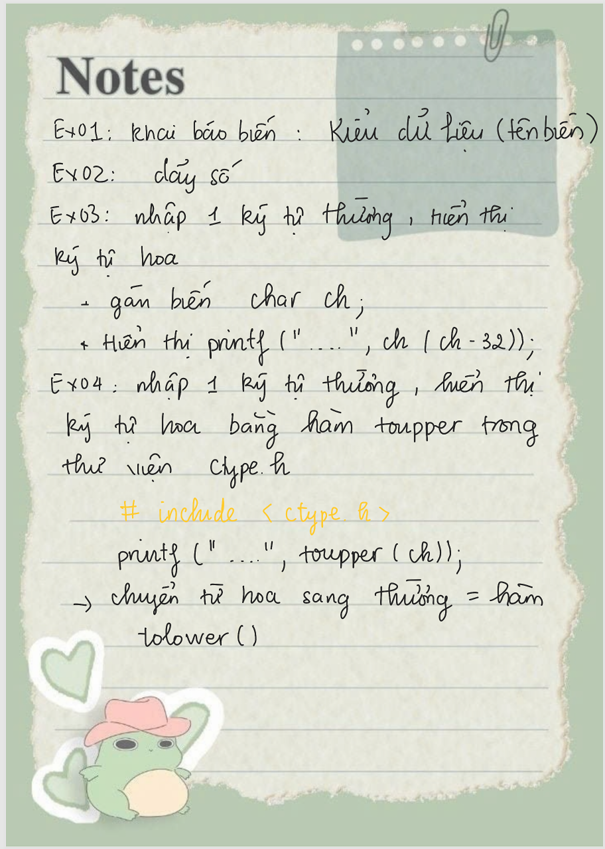 Notes
Ex01: khai báo biến : Kiểu dữ liệu (tên biến)
Ex02: dãy số
Ex03: nhập 1 ký tự thường, hiển thị
ký tự hoa
+ gán biến char ch;
+ Hiển thị printf ("....", ch (ch-32));
Ex04: nhập 1 ký tự thường, hiển thị
ký tự hoa bằng hàm toupper trong
thư viện ctype.h
# include <ctype.h>
printf ("....", toupper (ch));
→ chuyển từ hoa sang thường = hàm
tolower()